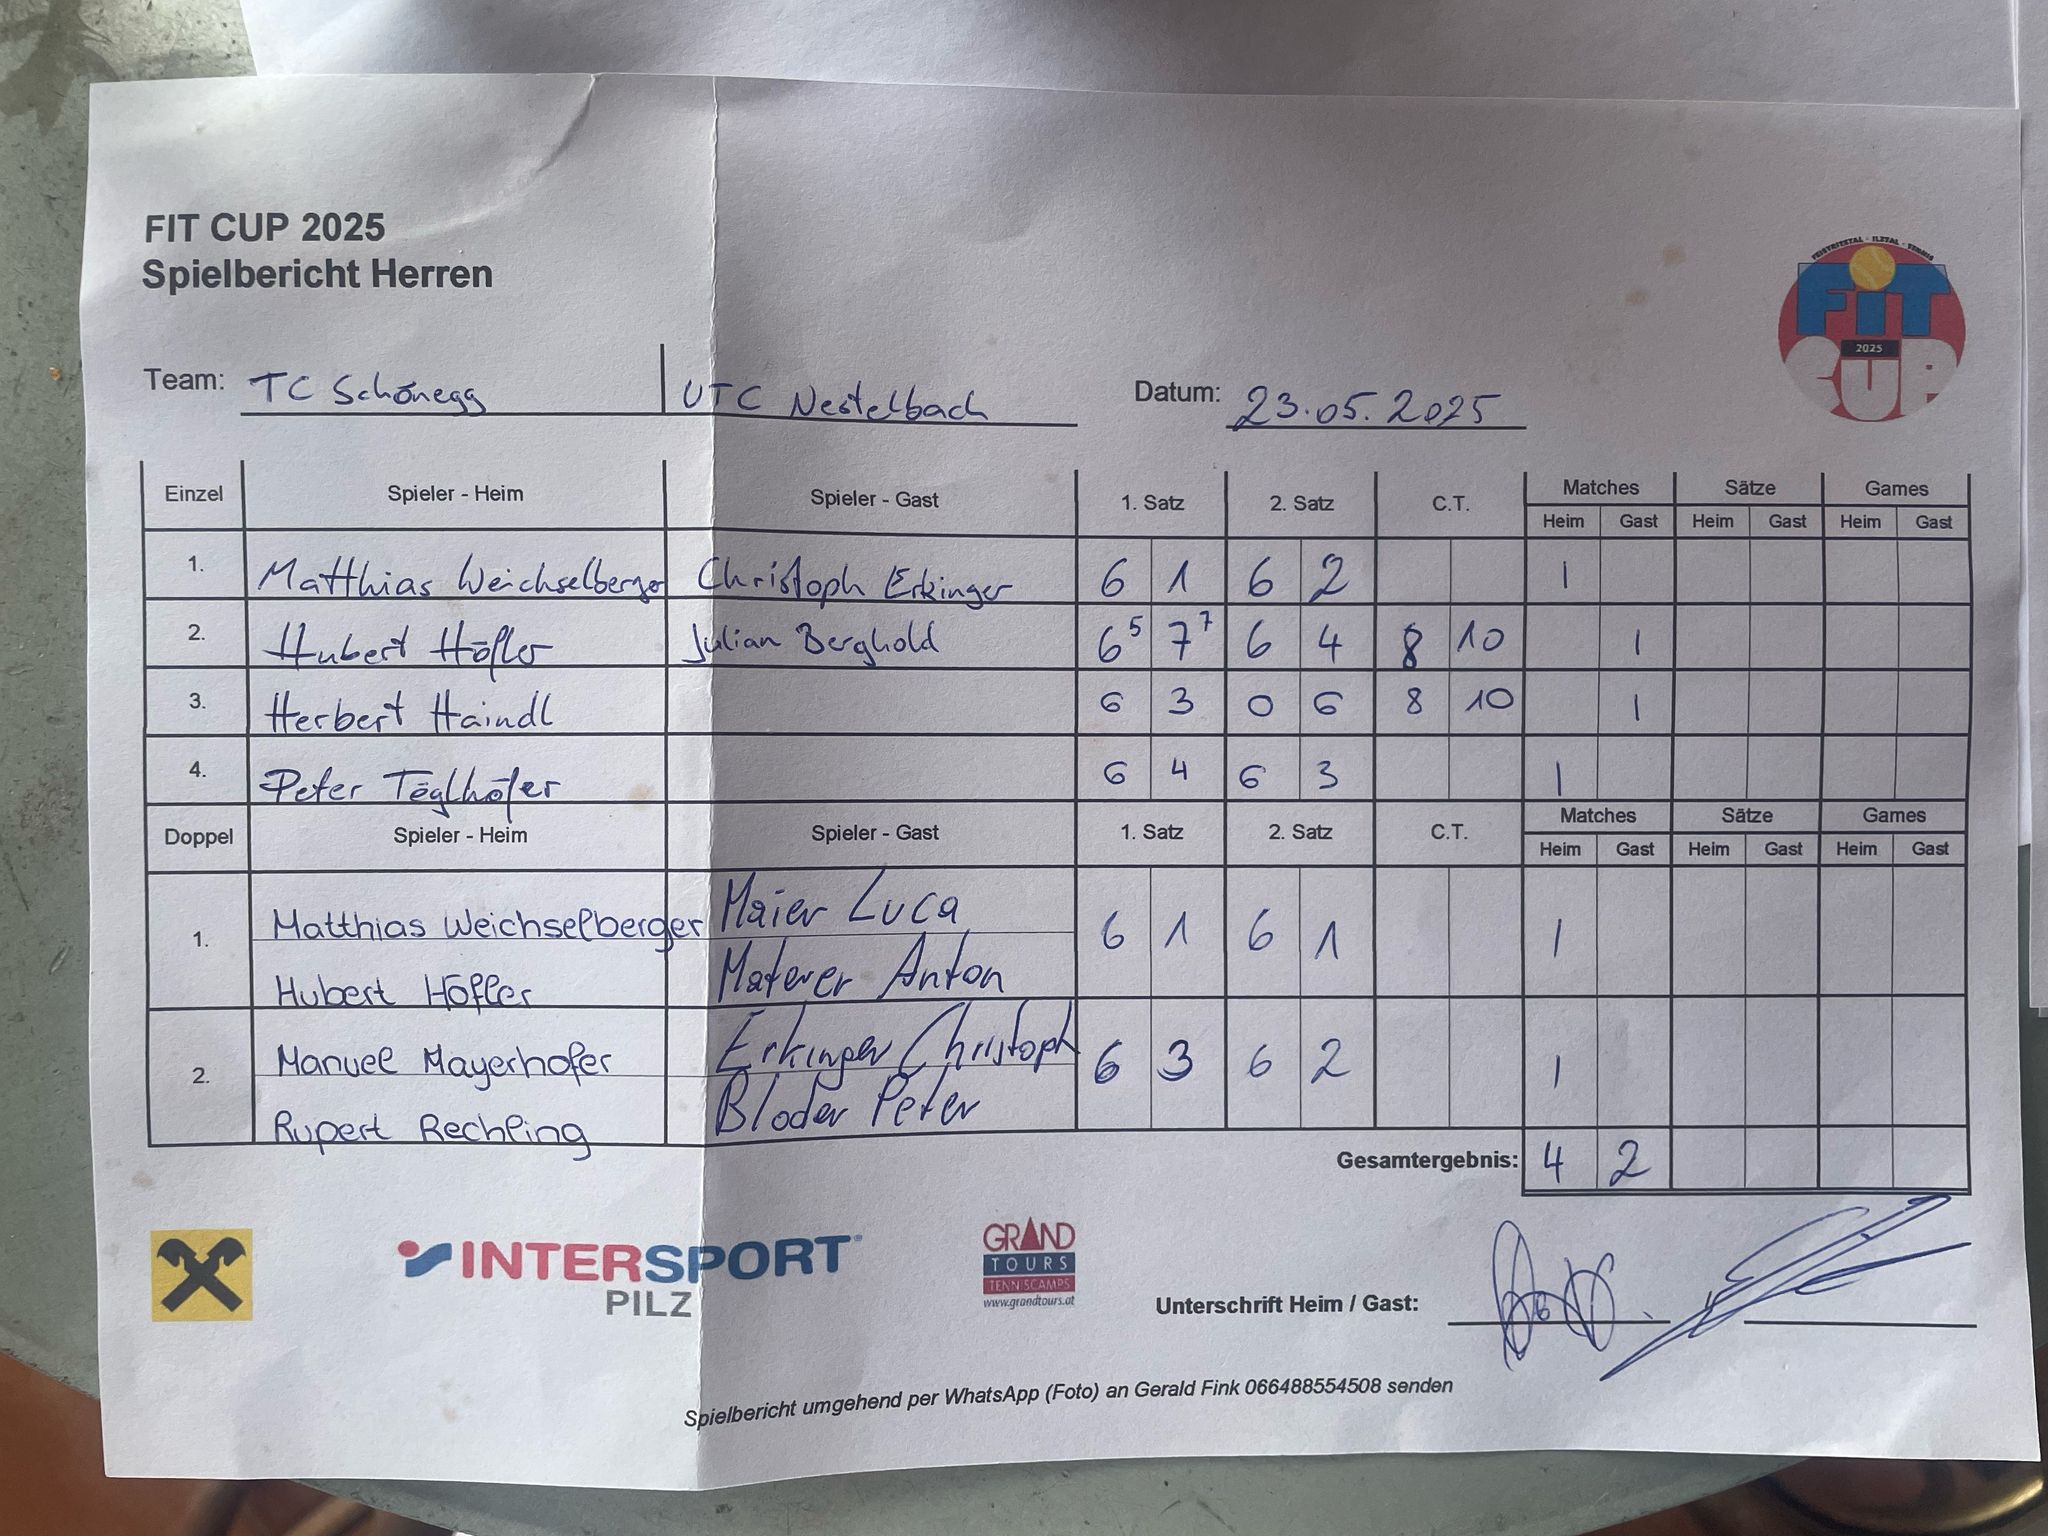 FIT CUP 2025
Spielbericht Herren
FEISTRITZTAL - ILZTAL - TENNIS
FiT
2025
CUP
Team: TC Schönegg UTC Nestelbach Datum: 23.05.2025
Einzel Spieler - Heim Spieler - Gast 1. Satz 2. Satz C.T. Matches Sätze Games
Heim Gast Heim Gast Heim Gast
1. Matthias Weichselberger Christoph Erkinger 6 1 6 2 1
2. Hubert Höfler Julian Berghold 6⁵ 7⁷ 6 4 8 10 1
3. Herbert Haindl 6 3 0 6 8 10 1
4. Peter Töglhofer 6 4 6 3 1
Doppel Spieler - Heim Spieler - Gast 1. Satz 2. Satz C.T. Matches Sätze Games
Heim Gast Heim Gast Heim Gast
1. Matthias Weichselberger Maier Luca 6 1 6 1 1
Hubert Höfler Materer Anton
2. Manuel Mayerhofer Erkinger Christoph 6 3 6 2 1
Rupert Rechling Bloder Peter
Gesamtergebnis: 4 2
INTERSPORT
PILZ
GRAND
TOURS
TENNISCAMPS
www.grandtours.at
Unterschrift Heim / Gast:
Spielbericht umgehend per WhatsApp (Foto) an Gerald Fink 066488554508 senden